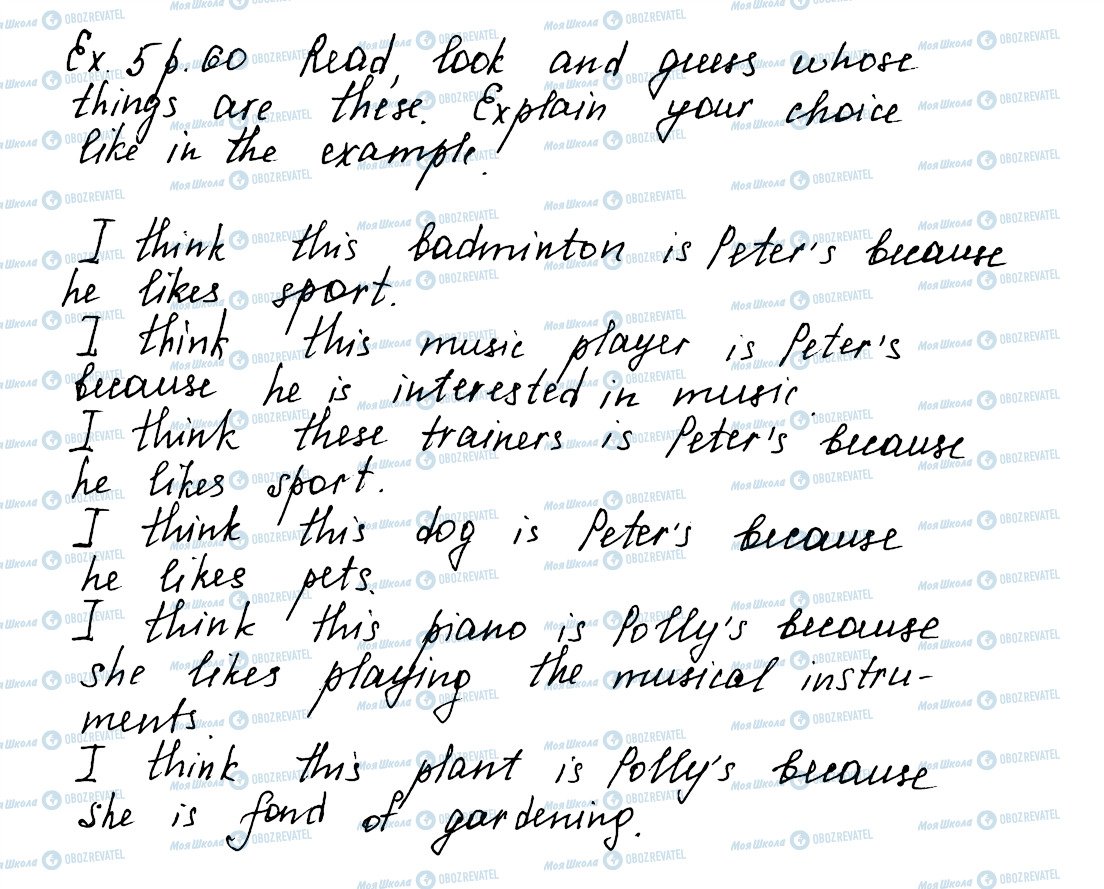 Ex. 5 p. 60 Read, look and guess whose
things are these. Explain your choice
like in the example.
I think this badminton is Peter's because
he likes sport.
I think this music player is Peter's
because he is interested in music.
I think these trainers is Peter's because
he likes sport.
I think this dog is Peter's because
he likes pets.
I think this piano is Polly's because
she likes playing the musical instru-
ments.
I think this plant is Polly's because
she is fond of gardening.